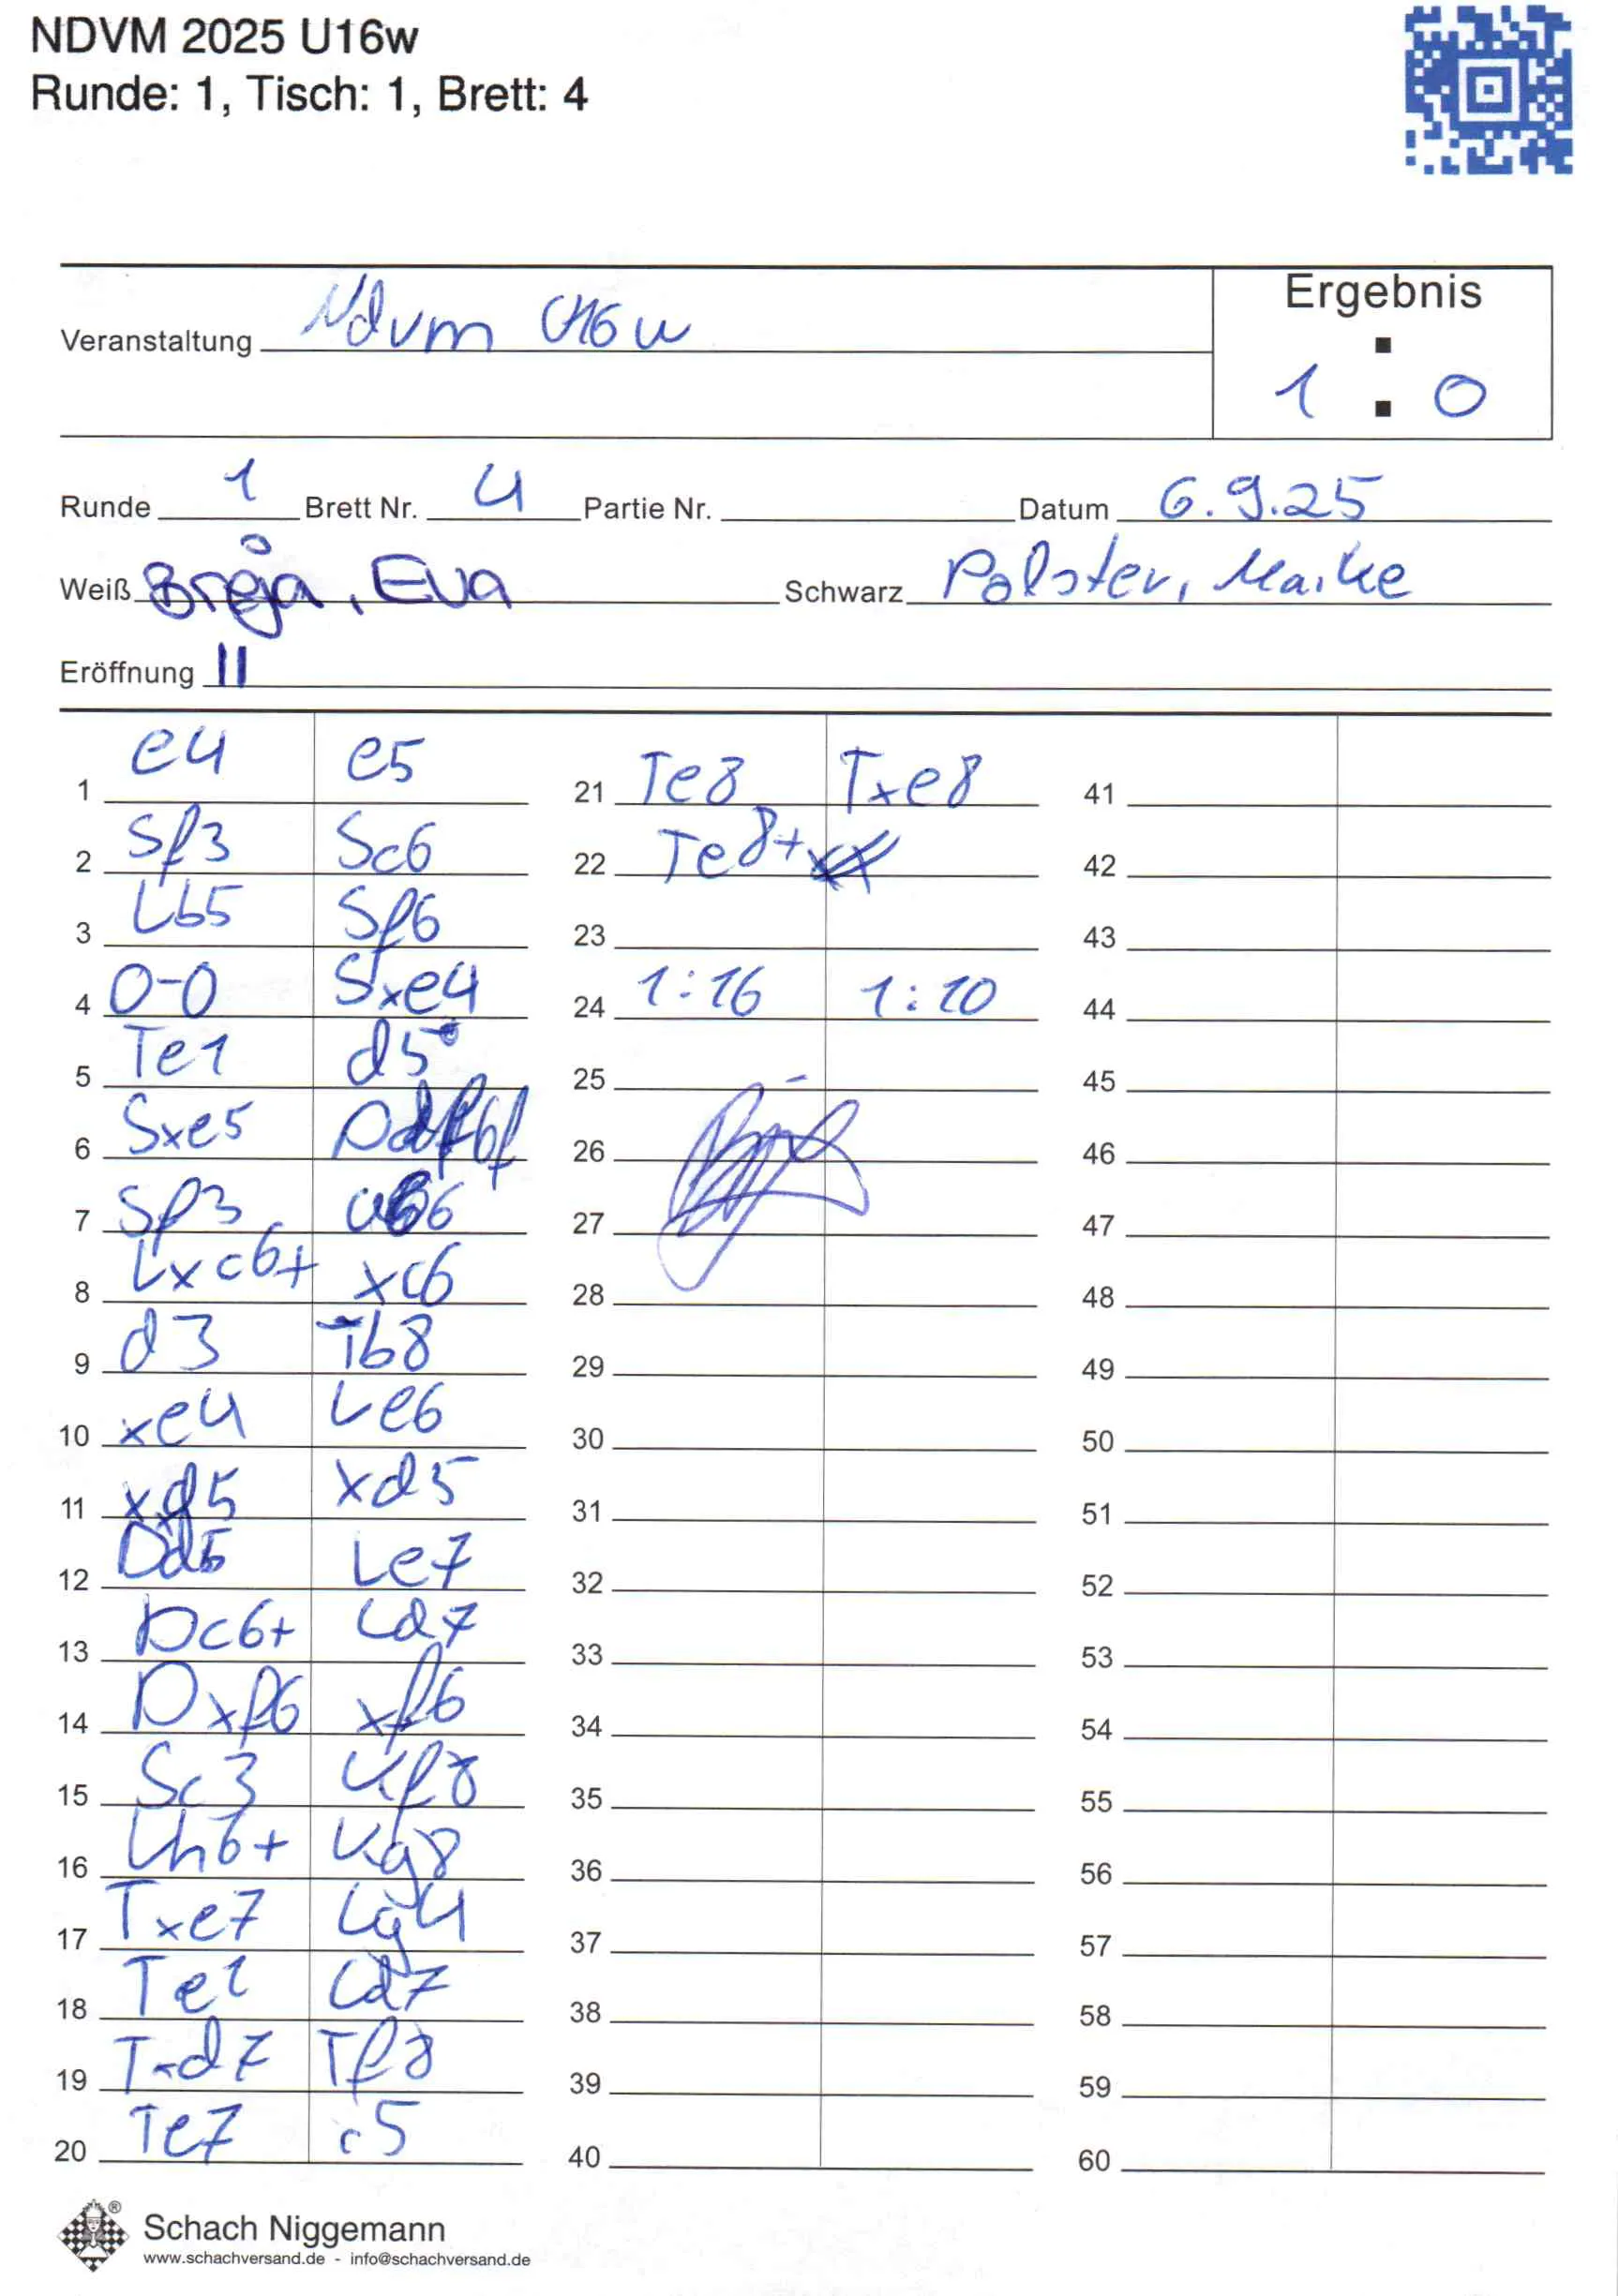 NDVM 2025 U16w
Runde: 1, Tisch: 1, Brett: 4
Ergebnis
Veranstaltung Ndvm U16w
1 : 0
Runde 1 Brett Nr. 4 Partie Nr. Datum 6.9.25
Weiß Breja, Eva Schwarz Polster, Maike
Eröffnung
1 e4 e5
2 Sf3 Sc6
3 Lb5 Sf6
4 0-0 Sxe4
5 Te1 d5
6 Sxe5
7 Sf3
8 Lxc6+ xc6
9 d3 Tb8
10 xe4 Le6
11 xd5 xd5
12 Dd5 Le7
13 Dc6+ Ld7
14 Dxf6 xf6
15 Sc3 Kf8
16 Lh6+ Kg8
17 Txe7 Lg4
18 Te1 Ld7
19 Txd7 Tf8
20 Te7 c5
21 Te8 Txe8
22 Te8+
23
24 1:16 1:10
25
26
27
28
29
30
31
32
33
34
35
36
37
38
39
40
41
42
43
44
45
46
47
48
49
50
51
52
53
54
55
56
57
58
59
60
Schach Niggemann
www.schachversand.de - info@schachversand.de